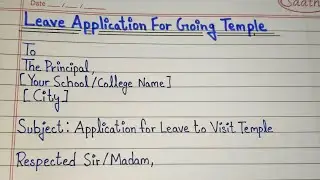 Date __/__/__
Leave Application For Going Temple
To
The Principal,
[Your School/College Name]
[City]
Subject: Application for Leave to Visit Temple
Respected Sir/Madam,